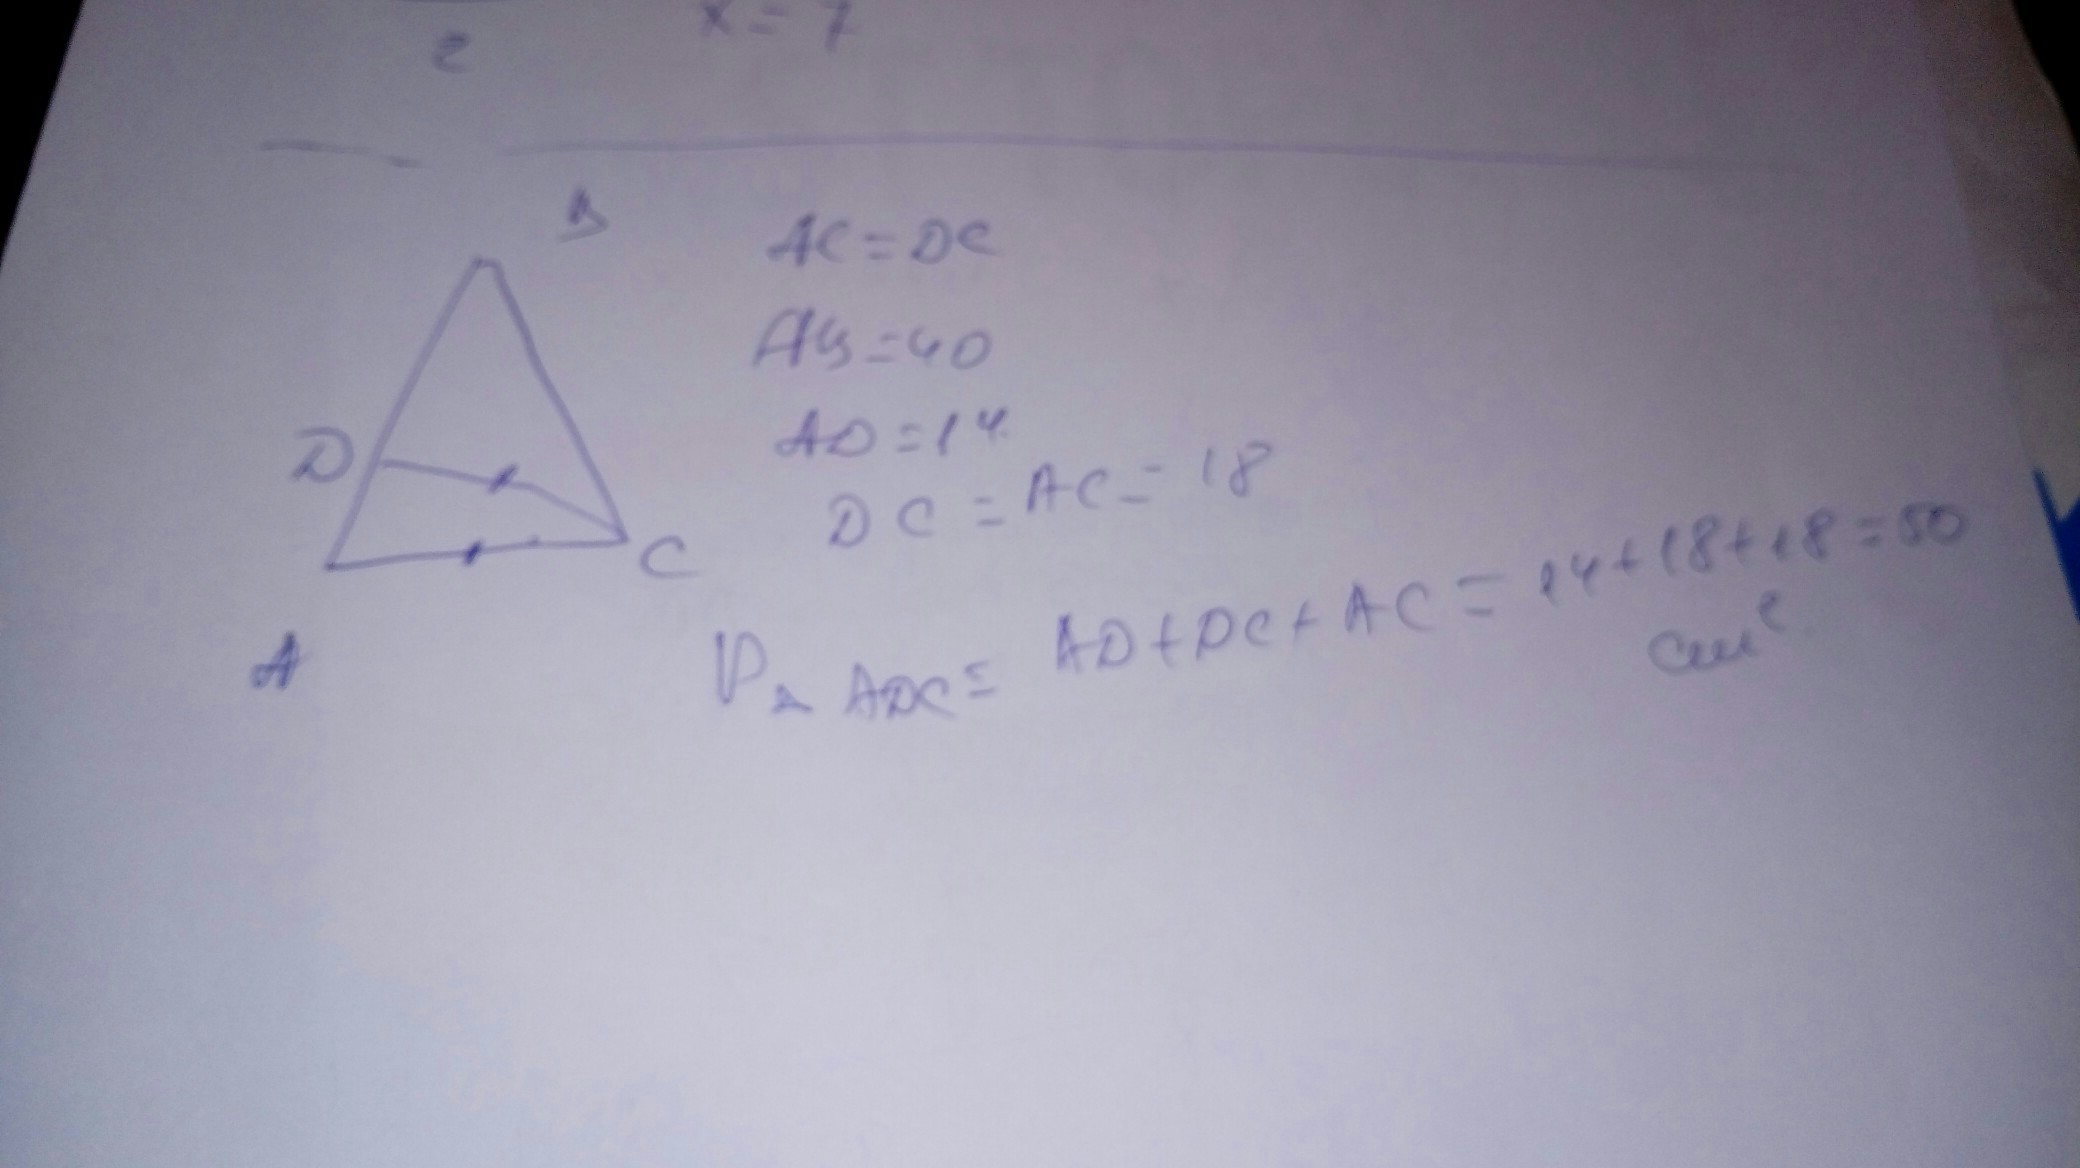 2
x = 7
B
AC = DC
AB = 40
AD = 14
D
DC = AC = 18
C
A
P△ ADC = AD + DC + AC = 14 + 18 + 18 = 50
см²